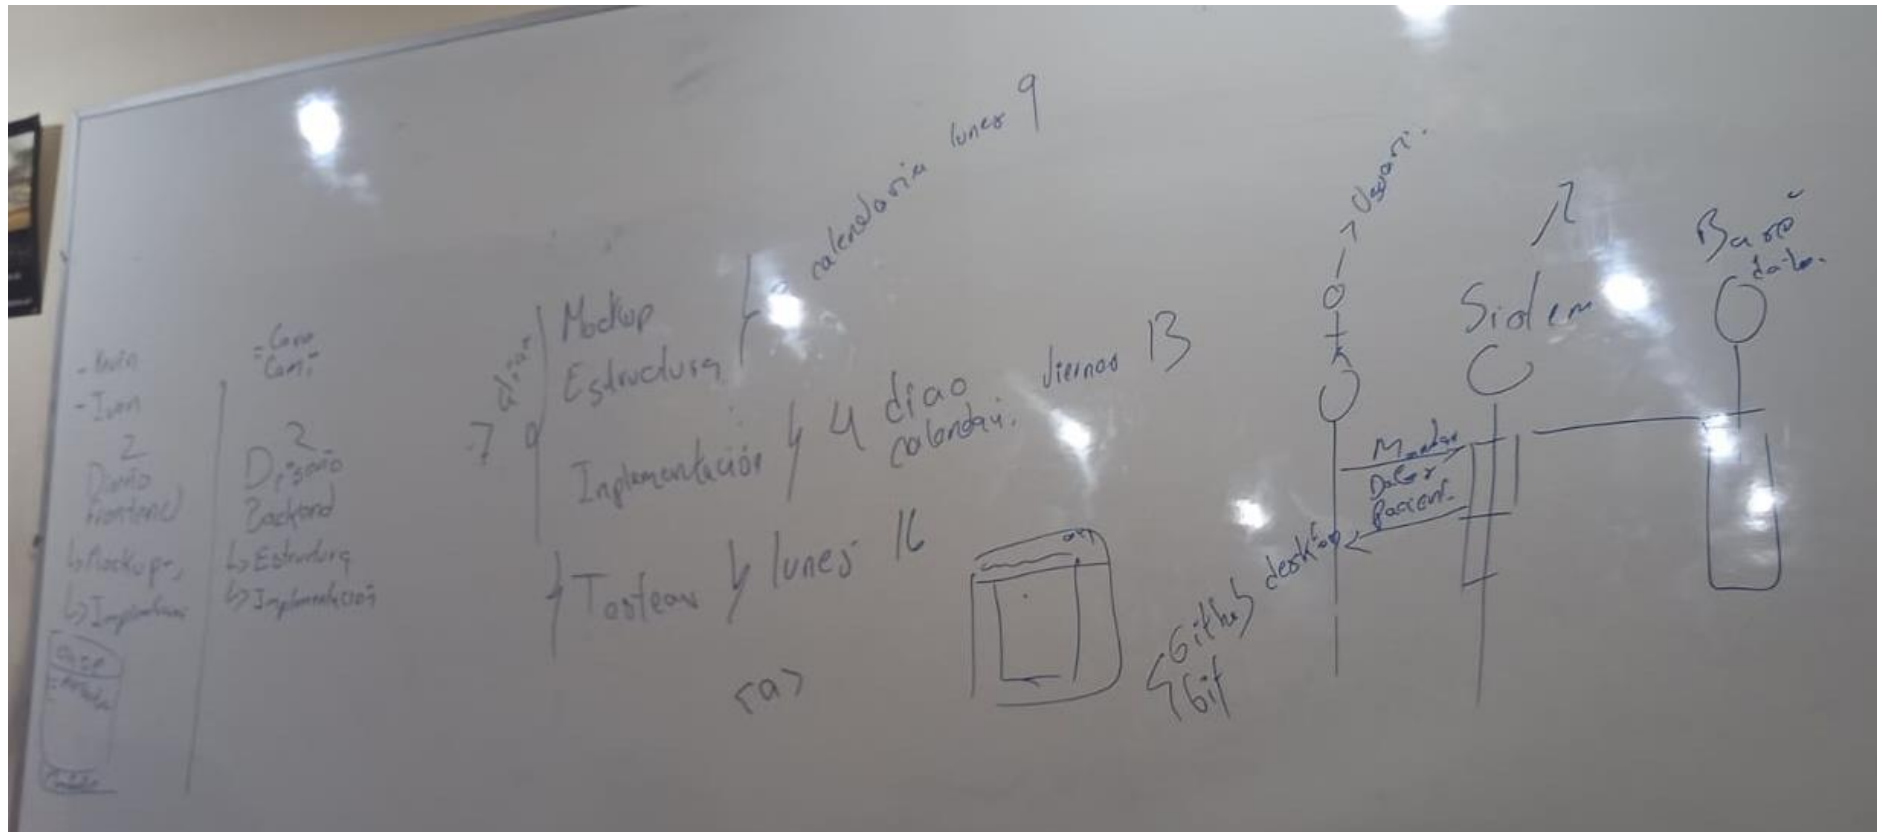 - Kevin
- Ivan
2
Diseño
frontend
↳ Mockups
= Caro
Cami
2
Diseño
Backend
↳ Estructura
↳ Implementación
7 días
Mockup
Estructura
calendario lunes 9
Inplementación 4 diao
calendari. Viernes 13
Testear lunes 16
<a>
Github desktop
Git
Usuari.
Sistem
Base
datos.
Mandar
Datos
Pacient.